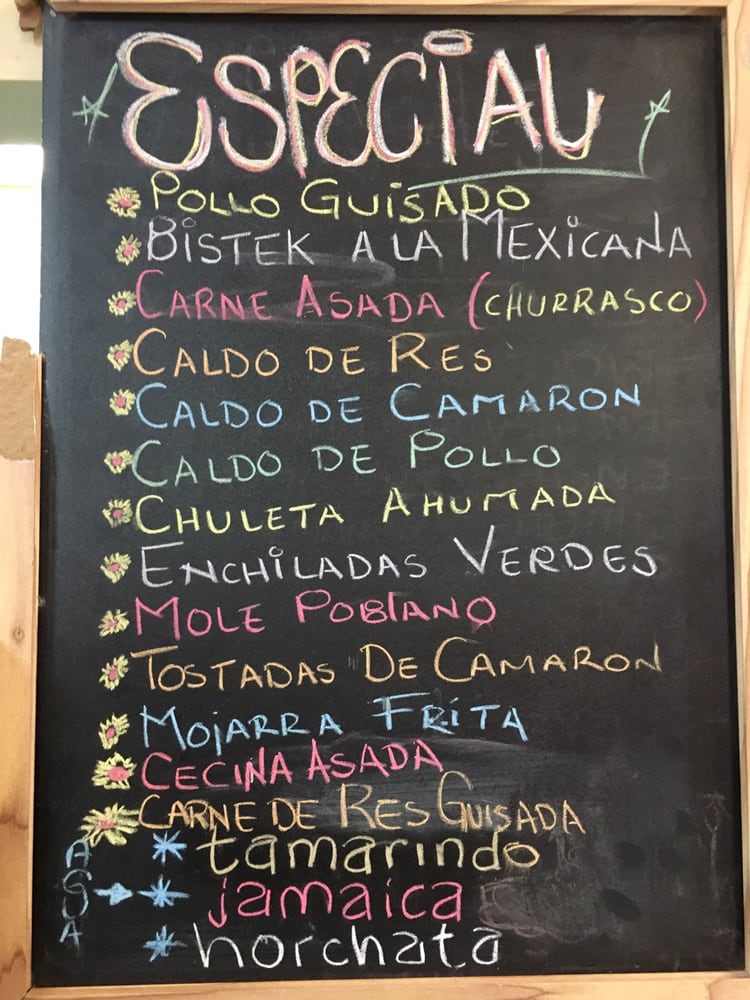 ESPECIAL
POLLO GUISADO
BISTEK A LA MEXICANA
CARNE ASADA (CHURRASCO)
CALDO DE RES
CALDO DE CAMARON
CALDO DE POLLO
CHULETA AHUMADA
ENCHILADAS VERDES
MOLE POBLANO
TOSTADAS DE CAMARON
MOJARRA FRITA
CECINA ASADA
CARNE DE RES GUISADA
AGUA
tamarindo
jamaica
horchata